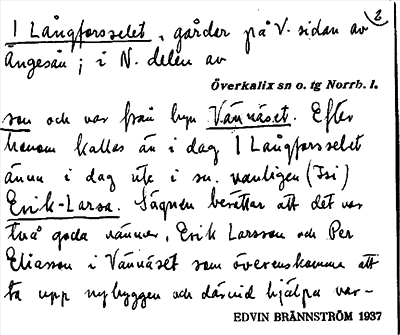 2
1 Långforsselet, gårder på V. sidan av
Ängesån; i N. delen av
Överkalix sn o. tg Norrb. l.
son och var från byn Vännäset. Efter
honom kallas än i dag 1 Långforsselet
ännu i dag ute i sn. vanligen (Isi)
Erik-Larsa. Sägnen berättar att det var
två goda vänner, Erik Larsson och Per
Eliasson i Vännäset som överenskommo att
ta upp nybyggen och därvid hjälpa var-
EDVIN BRÄNNSTRÖM 1937